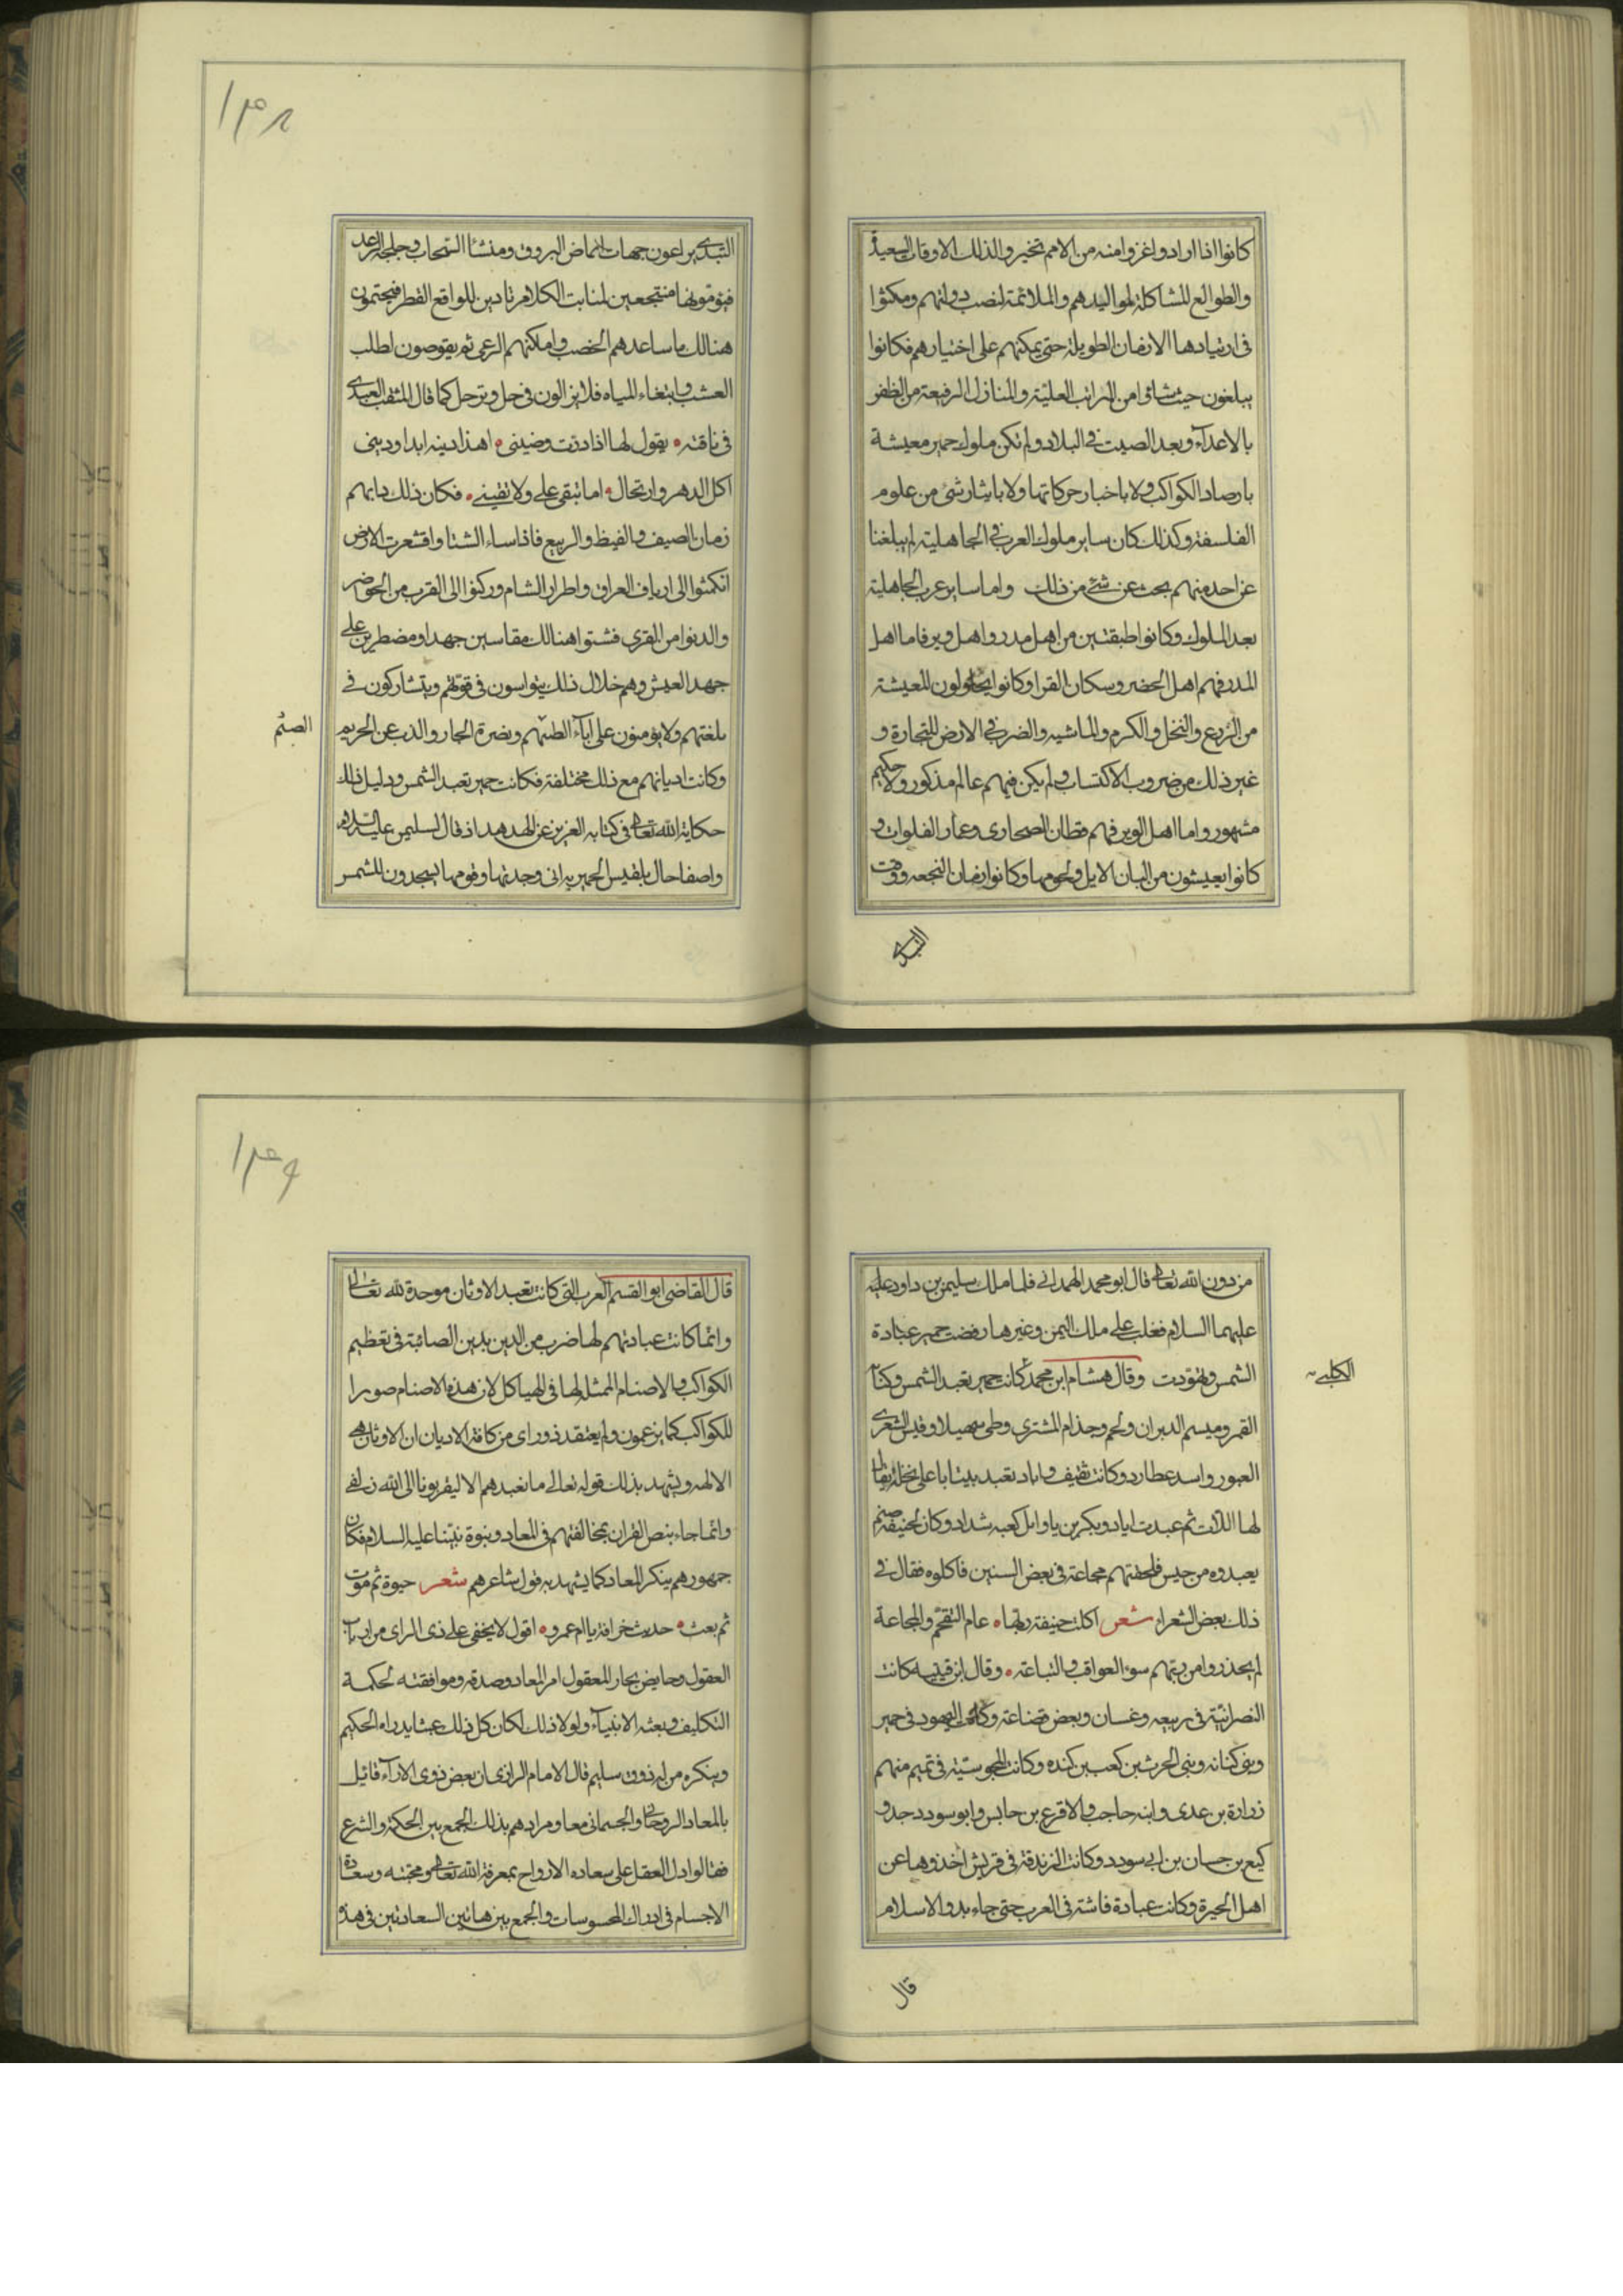 كانوا اذا ارادوا غزوا منه من الامم تخيروا لذلك الاوقات السعيدة
والطوالع المشاكلة لمواليدهم والملائمة لنصب دولتهم ومكثوا
فى ارتيادها الازمان الطويلة حتى يمكنهم على اختيارهم فكانوا
يبلغون حيث شاؤا من المراتب العلية والمنازل الرفيعة من الظفر
بالاعدآء وبعد الصيت فى البلاد ولم تكن ملوك حمير معيشة
بارصاد الكواكب ولا باخبار حركاتها ولا باشار شئ من علوم
الفلسفة وكذلك كان ساير ملوك العرب فى الجاهلية لم يبلغنا
عن احد منهم بحث عن شئ من ذلك واما ساير عرب الجاهلية
بعد الملوك وكانوا طبقتين من اهل مدر واهل وبر فاما اهل
المدر فهم اهل الحضر وسكان القرا وكانوا يحاولون المعيشة
من الزرع والنخل والكرم والماشيه والضرب فى الارض للتجارة و
غير ذلك من ضروب الاكتساب ولم يكن فيهم عالم مذكور ولا حكيم
مشهور واما اهل الوبر فهم قطان الصحارى وعمار الفلوات و
كانوا يعيشون من البان الابل ولحومها وكانوا زمان النجعه ووقت
التبدى
١٣٨
التبدى يراعون جهات ايماض البروق ومنشا السحاب وجلجلة الرعد
فيؤمونها منتجعين لمنابت الكلا مرتادين للواقع القطر فيجتمون
هنالك ما ساعدهم الخصب وامكنهم الرعى ثم يقوضون لطلب
العشب وابتغاء المياه فلا يزالون فى حل وترحل كما قال المثقب العبدى
فى ناقته • يقول لها اذا درئت وضينى • اهذا دينه ابدا ودينى
اكل الدهر وارتحال • اما تبقى على ولا تقينى • فكان ذلك دابهم
زمان الصيف والقيظ والربيع فاذا ساء الشتا واقشعرت الارض
انكمشوا الى ارياف العراق واطرار الشام وركنوا الى القرب من الحواضر
والدنوا من القرى فشتوا هنالك مقاسين جهدا ومضطربن على
جهد العيش وهم خلال ذلك يتواسون فى قوتهم ويتشاركون فى
بلغتهم ولا يؤمنون على ابآء الطيهم ونصرة الجار والذب عن الحريم
الضيم
وكانت اديانهم مع ذلك مختلفة فكانت حمير تعبد الشمس ودليل ذلك
حكاية الله تعالى فى كتابه العزيز عن الهدهد اذ قال لسليمن عليه السلام
واصفا حال بلقيس الحميريه انى وجدتها وقومها يسجدون للشمس
من دون الله تعالى قال ابو محمد الهمدانى فلما ملك سليمن بن داود عليه
عليهما السلام فغلب على ملك اليمن وغيرها رفضت حمير عبادة
الشمس وتهودت وقال هشام ابن محمد كانت حمير تعبد الشمس وكنانه
الكلبى
القمر وميسم الدبران ولخم وجذام المشترى وطى سهيلا وقيس الشعرى
العبور واسد عطارد وكانت ثقيف واياد تعبد بيتا باعلى نخلة يقال
لها اللات ثم عبدت اياد وبكر بن ياوايل كعبه شداد وكان لحنيفة صنم
يعبدوه من حيس فلحقتهم مجاعة فى بعض السنين فاكلوه فقال فى
ذلك بعض الشعراء شعر اكلت حنيفة ربها • عام التقحم والمجاعة
لم يحذروا من ربهم سوء العواقب والتباعة • وقال ابن قتيبه كانت
النصرانيّة فى ربيعه وغسان وبعض قضاعة وكانت اليهود فى حمير
وبنى كنانه وبنى الحرث بن كعب بن كنده وكانت المجوسيّة فى تميم منهم
زرارة بن عدى وابنه حاجب والاقرع بن حابس وابو سودد جد و
كيع بن حسان بن ابى سودد وكانت الزندقة فى قريش اخذوها عن
اهل الحيرة وكانت عبادة فاشة فى العرب حتى جاء بدو الاسلام
قال
١٣٩
قال القاضى ابو القسم العرب التى كانت تعبد الاوثان موحدة لله تعالى
وانما كانت عبادتهم لها ضرب من الدين بدين الصائبة فى تعظيم
الكواكب والاصنام الممثل لها فى الهياكل لان هذه الاصنام صورا
للكواكب كما يزعمون ولم يعتقد ذو راى من كافة الاديان ان الاوثان هى
الالهه ويشهد بذلك قوله تعالى ما نعبدهم الا ليقربونا الى الله زلفى
وانما جاء بنص القران بمخالفتهم فى المعاد ونبوة نبينا عليه السلام فكان
جمهورهم ينكر المعاد كما يشهد به قول شاعرهم شعر حيوة ثم موت
ثم بعث • حديث خرافة يا ام عمرو • اقول لا يخفى على ذى الراى من ارباب
العقول وحايض بحار المعقول امر المعاد وصدقه وموافقته لحكمة
التكليف وبعثه الانبيآء ولولا ذلك لكان كل ذلك عبثا يدراه الحكيم
وينكره من له ذوق سليم قال الامام الرازى ان بعض ذوى الارآء قائل
بالمعاد الروحانى والجسمانى معا ومرادهم بذلك الجمع بين الحكمة والشرع
فقالوا دل العقل على سعاده الارواح بمعرفة الله تعالى ومحبته وسعادة
الاجسام فى ادراك المحسوسات والجمع بين هاتين السعادتين فى هذه